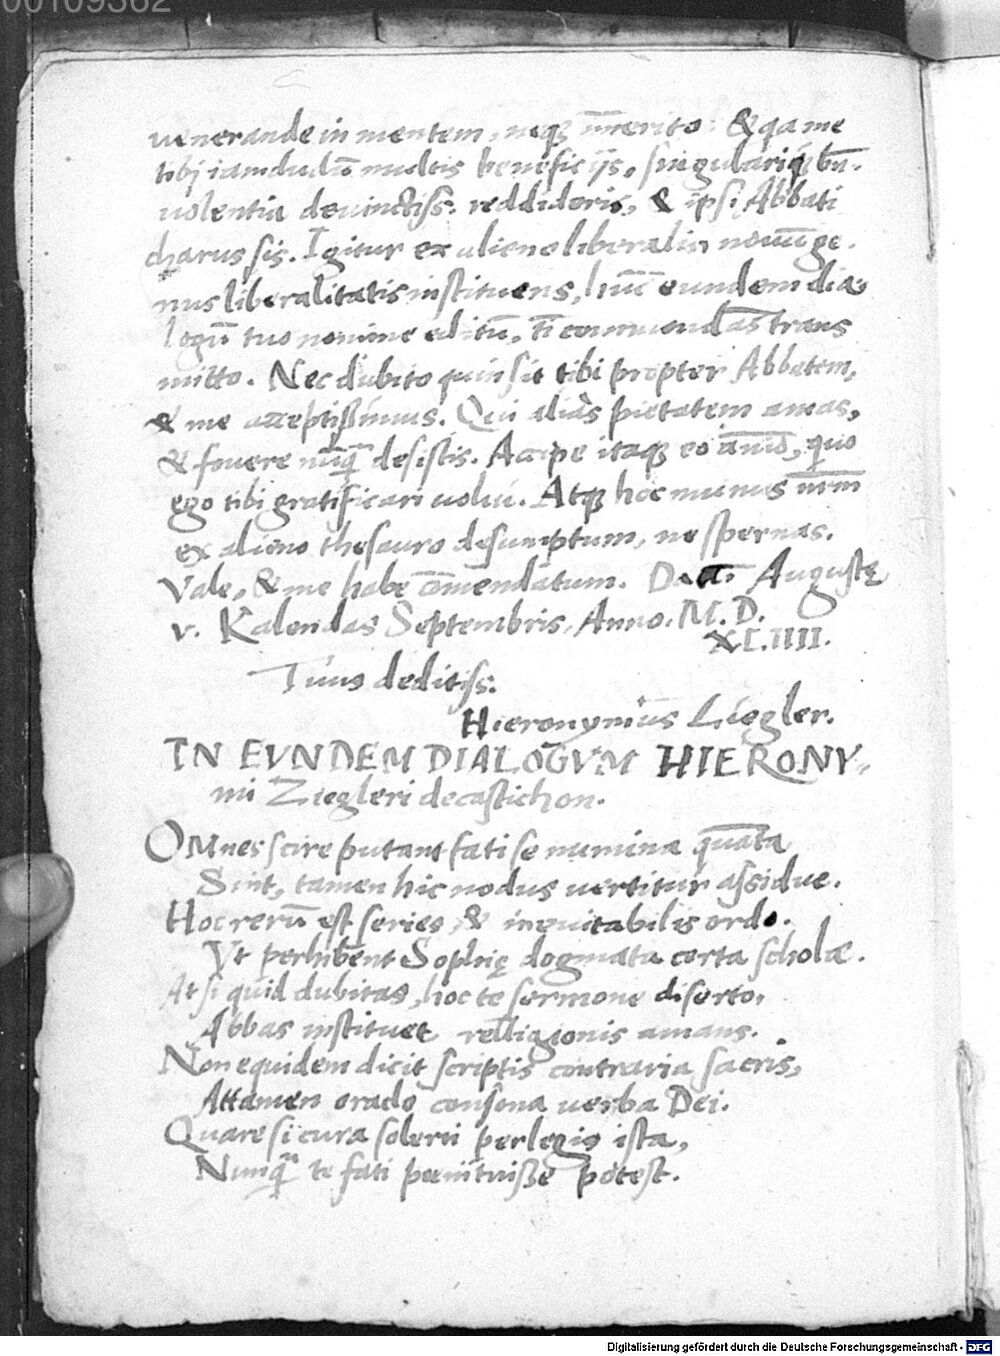 00109362
venerande in mentem, neq́ꝫ im̄erito: & q̄ a me
tibi iamdudū multis beneficijs, singulariq́ꝫ bn̄-
uolentia deuinctiss: reddideris, & ipsi Abbati
charus sis. Igitur ex alieno liberalis nouū ge-
nus liberalitatis instituens, hūc eundem dia-
logū tuo nomine editū, t̄i commendās trans
mitto. Nec dubito quin sit tibi propter Abbatem,
& me acceptißimus. Qui aliàs pietatem amas,
& fouere nūq̄ desistis. Accipe itaqꝫ eo aīmo, quo
ego tibi gratificari uolui. Atqꝫ hoc munus nr̄m
ex alieno thesauro desumptum, ne spernas.
Vale, & me habe cōmendatum. Dat: Augustę
v. Kalendas Septembris, Anno. M. D.
XLIIII.
Tuus deditiss:
Hieronymus Ziegler.
IN EVNDEM DIALOGVM HIERONY-
mi Ziegleri decastichon.
OMnes scire putant fati se numina quāta
Sint, tamen hic nodus uertitur assidue.
Hoc rerū est series, & ineuitabilis ordo.
Vt perhibent Sophię dogmata certa scholæ.
At si quid dubitas, hoc te sermone diserto,
Abbas instituet relligionis amans.
Non equidem dicit scriptis contraria sacris,
Attamen credo consona uerba Dei.
Quare si cura solerti perlegis ista,
Nunq̄ te fati pœnituisße potest.
Digitalisierung gefördert durch die Deutsche Forschungsgemeinschaft - DFG